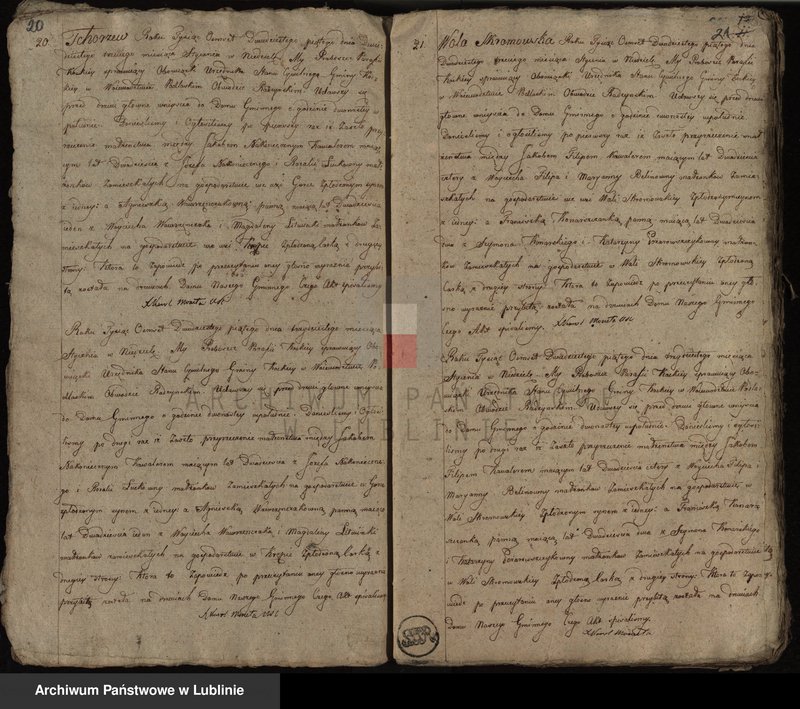 20
20. Tchorzew Roku Tysiąc Osmset Dwudziestego piątego dnia Dwu
dziestego trzeciego miesiąca Stycznia w Niedzielę. My Proboszcz Parafii
sprawuiący Obowiązki Urzędnika Stanu Cywilnego Gminy
w Woiewodztwie Podlaskim Obwodzie Radzyńskim. Udawszy się
przed drzwi głowne weyścia do Domu Gminnego o godzinie dwunastey w
południe. Donieslismy i Ogłosilismy po pierwszy raz iż Zaszło przy
rzeczenie małżenstwa między Jakobem Nakoniecznym Kawalerem maiąc
ym lat Dwadziescia z Jozefa Nakoniecznego i Rozalii małż
żonkow Zamieszkałych na gospodarstwie we wsi Gorce Spłodzonym synem
z iedney: a Agnieszką Wawrzenczakowną panną maiącą lat Dwadziescia
ieden z Woyciecha Wawrzenczaka i Magdaleny małżonkow Za
mieszkałych na gospodarstwie we wsi Spłodzoną Corką z drugiey
strony. Ktora to Zapowiedz po przeczytaniu oney głosno wyraznie przybi
ta została na drzwiach Domu Naszego Gminnego Czego Akt spisalismy
Roku Tysiąc Osmset Dwudziestego piątego dnia trzydziestego miesiąca
Stycznia w Niedzielę. My Proboszcz Parafii sprawuiący Obo
wiązki Urzędnika Stanu Cywilnego Gminy w Woiewodztwie Po
dlaskim Obwodzie Radzyńskim. Udawszy się przed drzwi głowne weyscia
do Domu Gminnego o godzinie dwunastey w południe. Donieslismy i Ogłosi
lismy po drugi raz iż Zaszło przyrzeczenie małżenstwa między Jakobem
Nakoniecznym Kawalerem maiącym lat Dwadziescia z Jozefa Nakonieczne
go i Rozalii małżonkow Zamieszkałych na gospodarstwie w Gorce
spłodzonym synem z iedney: a Agnieszką Wawrzenczakowną panną maiącą
lat Dwadziescia ieden z Woyciecha Wawrzenczaka i Magdaleny
małżonkow zamieszkałych na gospodarstwie w Spłodzoną Corką z
drugiey strony. Ktora to Zapowiedz po przeczytaniu oney głosno wyraznie
przybita została na drzwiach Domu Naszego Gminnego Czego Akt spisalismy
21. Wola Skromowska Roku Tysiąc Osmset Dwudziestego piątego dnia
Dwudziestego trzeciego miesiąca Stycznia w Niedzielę. My Proboszcz Parafii
sprawuiący Obowiązki Urzędnika Stanu Cywilnego Gminy
w Woiewodztwie Podlaskim Obwodzie Radzyńskim. Udawszy się przed drzwi
głowne weyscia do Domu Gminnego o godzinie dwunastey w południe
Donieslismy i ogłosilismy po pierwszy raz iż Zaszło przyrzeczenie mał
żenstwa między Jakobem Filipem Kawalerem maiącym lat Dwadziescia
cztery z Woyciecha Filipa i Maryanny małżonkow Zamie
szkałych na gospodarstwie we wsi Woli Skromowskiey Spłodzonym synem
z iedney: a Franciszką panną maiącą lat Dwadziescia
dwa z Szymona i Katarzyny małżon
kow Zamieszkałych na gospodarstwie w Woli Skromowskiey Spłodzoną
Corką z drugiey strony. Ktora to Zapowiedz po przeczytaniu oney gło
sno wyraznie przybita została na drzwiach Domu Naszego Gminnego
Czego Akt spisalismy.
Roku Tysiąc Osmset Dwudziestego piątego dnia trzydziestego miesiąca
Stycznia w Niedzielę. My Proboszcz Parafii sprawuiący Obo
wiązki Urzędnika Stanu Cywilnego Gminy w Woiewodztwie Podla
skim Obwodzie Radzyńskim. Udawszy się przed drzwi głowne weyscia
do Domu Gminnego o godzinie dwunastey w południe. Donieslismy i ogłosi
lismy po drugi raz iż Zaszło przyrzeczenie małżenstwa między Jakobem
Filipem Kawalerem maiącym lat Dwadziescia cztery z Woyciecha Filipa i
Maryanny małżonkow Zamieszkałych na gospodarstwie w
Woli Skromowskiey Spłodzonym synem z iedney: a Franciszką
panną maiącą lat Dwadziescia dwa z Szymona
i Katarzyny małżonkow Zamieszkałych na gospodarstwie
w Woli Skromowskiey Spłodzoną Corką z drugiey strony. Ktora to Zapo
wiedz po przeczytaniu oney głosno wyraznie przybita została na drzwiach
Domu Naszego Gminnego Czego Akt spisalismy.
ARCHIWUM PAŃSTWOWE
W LUBLINIE
Archiwum Państwowe w Lublinie